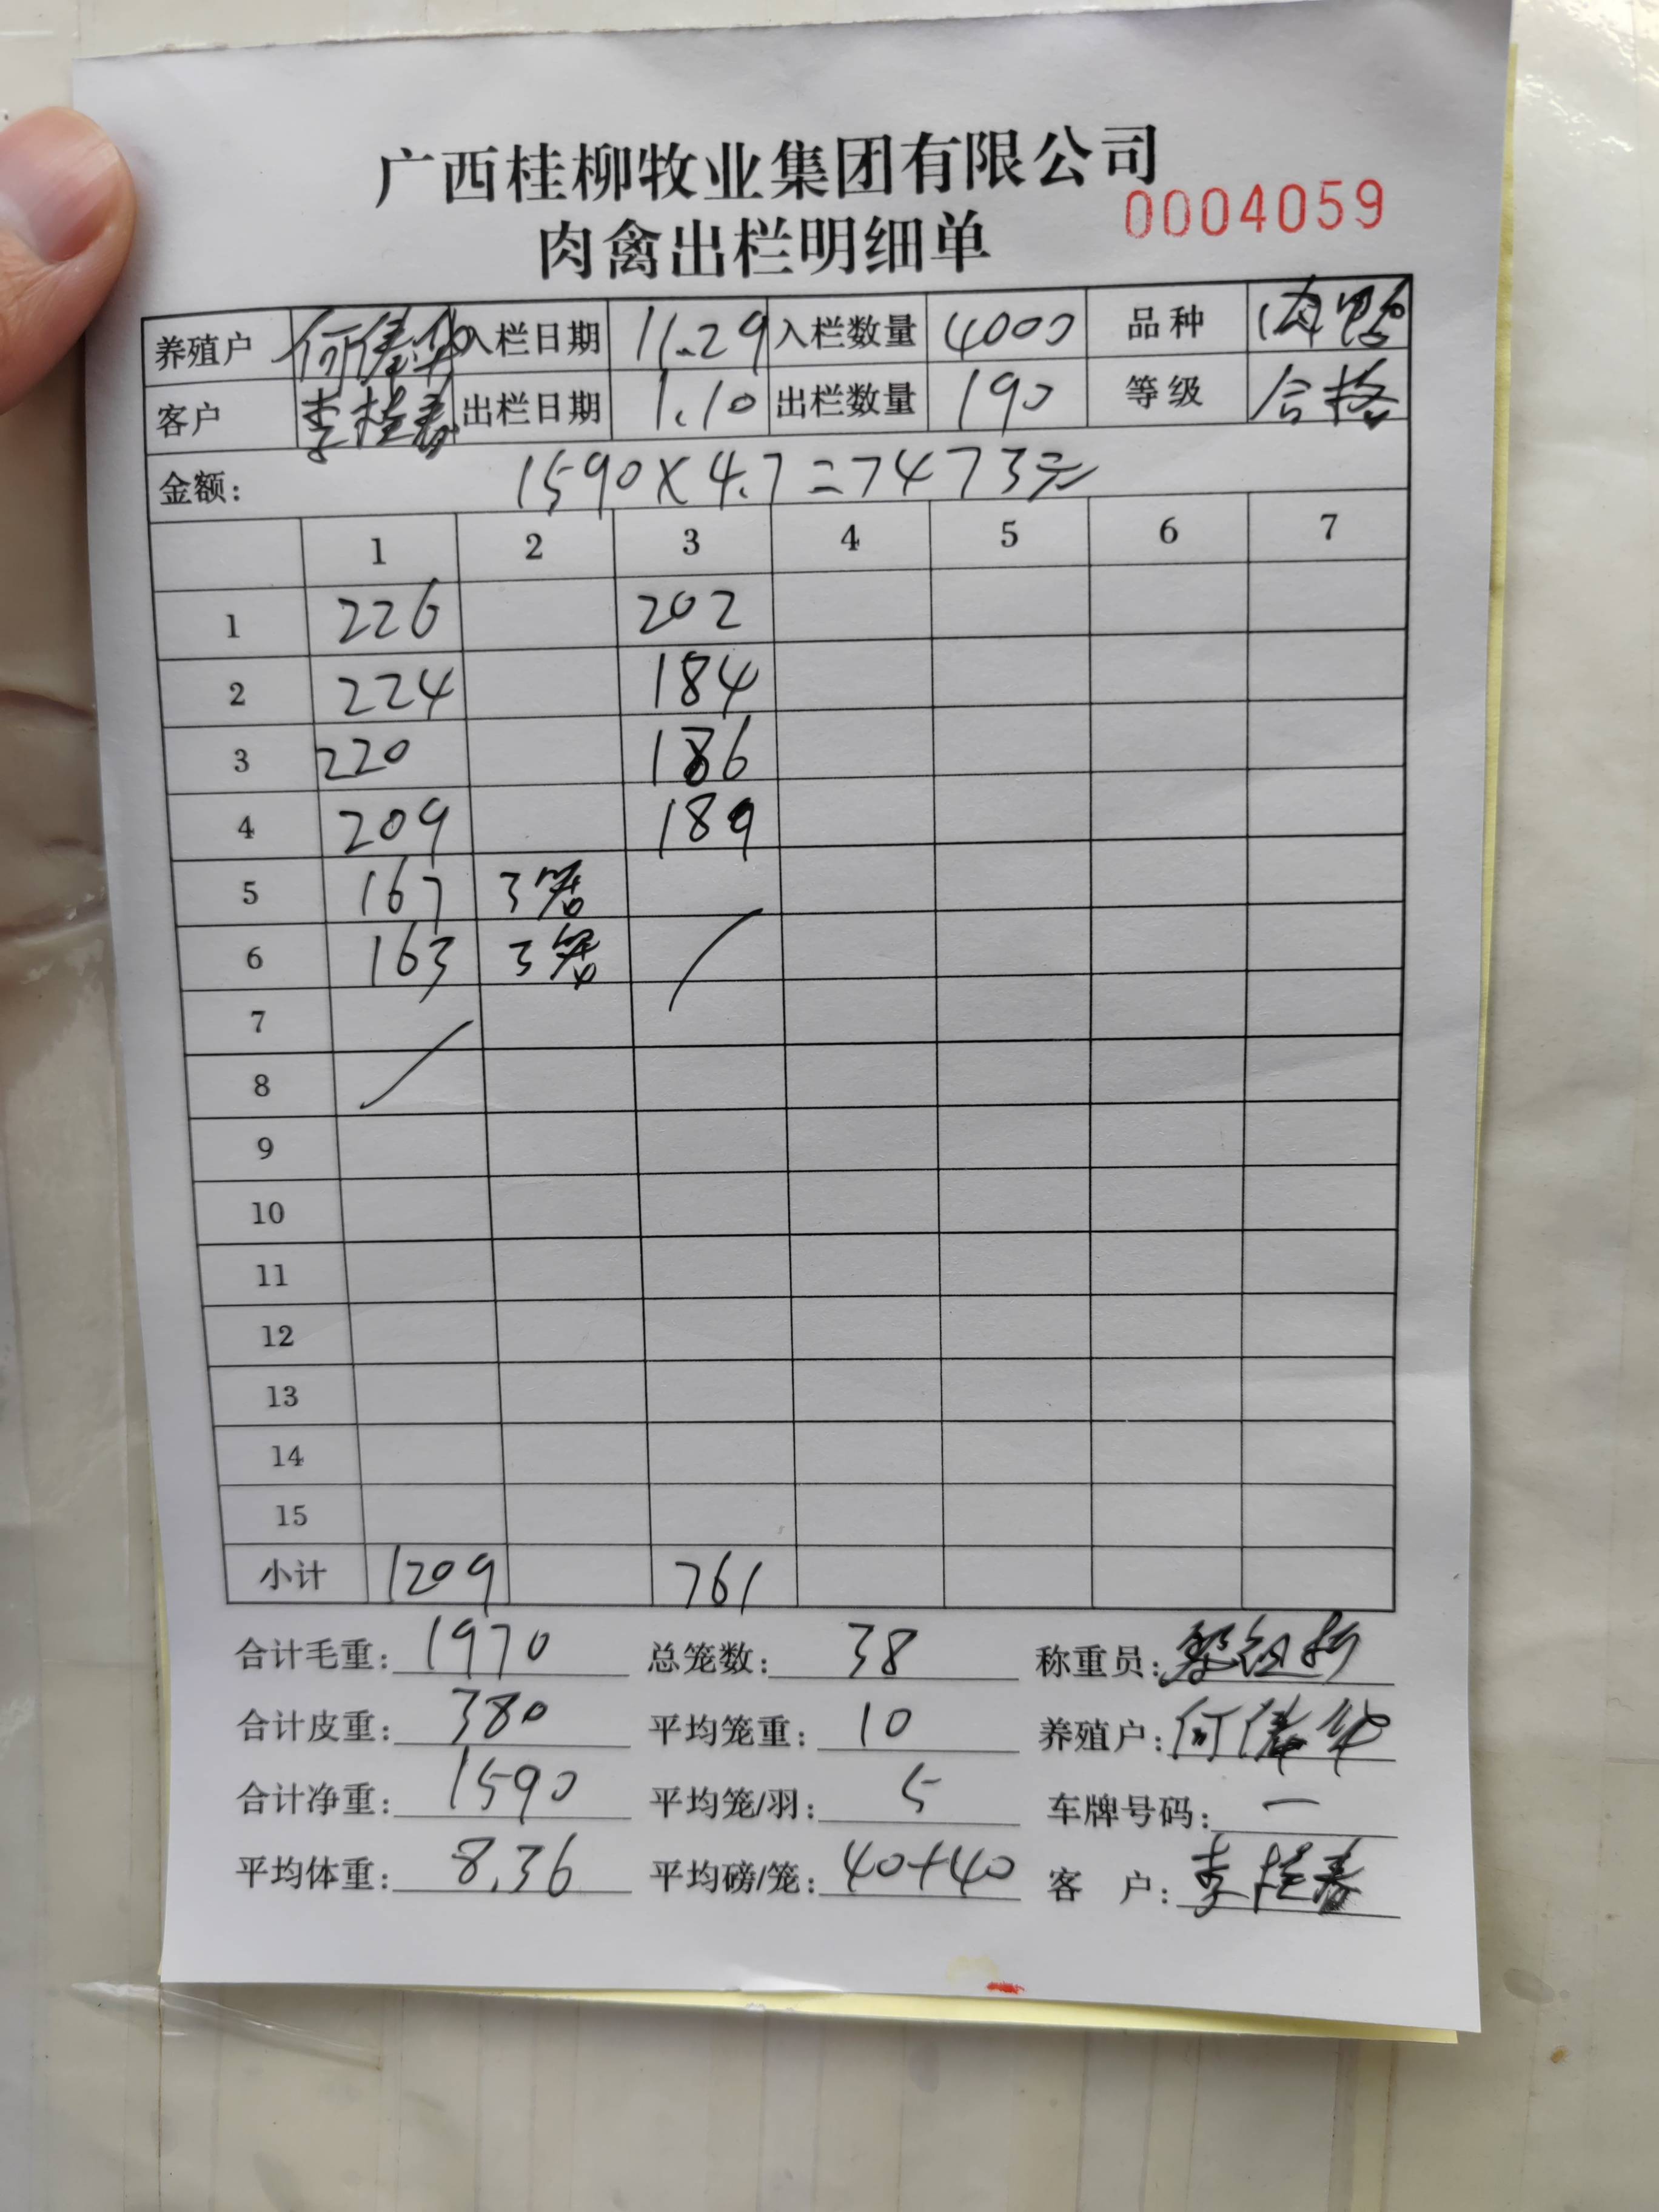 广西桂柳牧业集团有限公司
0004059
肉禽出栏明细单
养殖户 何 入栏日期 11.29 入栏数量 4000 品种 肉鸭
客户 李桂春 出栏日期 1.10 出栏数量 190 等级 合格
金额: 1590×4.7=7473元
1 2 3 4 5 6 7
1 226 202
2 224 184
3 220 186
4 209 189
5 167 3
6 163 3
7
8
9
10
11
12
13
14
15
小计 1209 761
合计毛重: 1970 总笼数: 38 称重员:
合计皮重: 380 平均笼重: 10 养殖户: 何
合计净重: 1590 平均笼/羽: 5 车牌号码: 一
平均体重: 8.36 平均磅/笼: 40+40 客 户: 李桂春